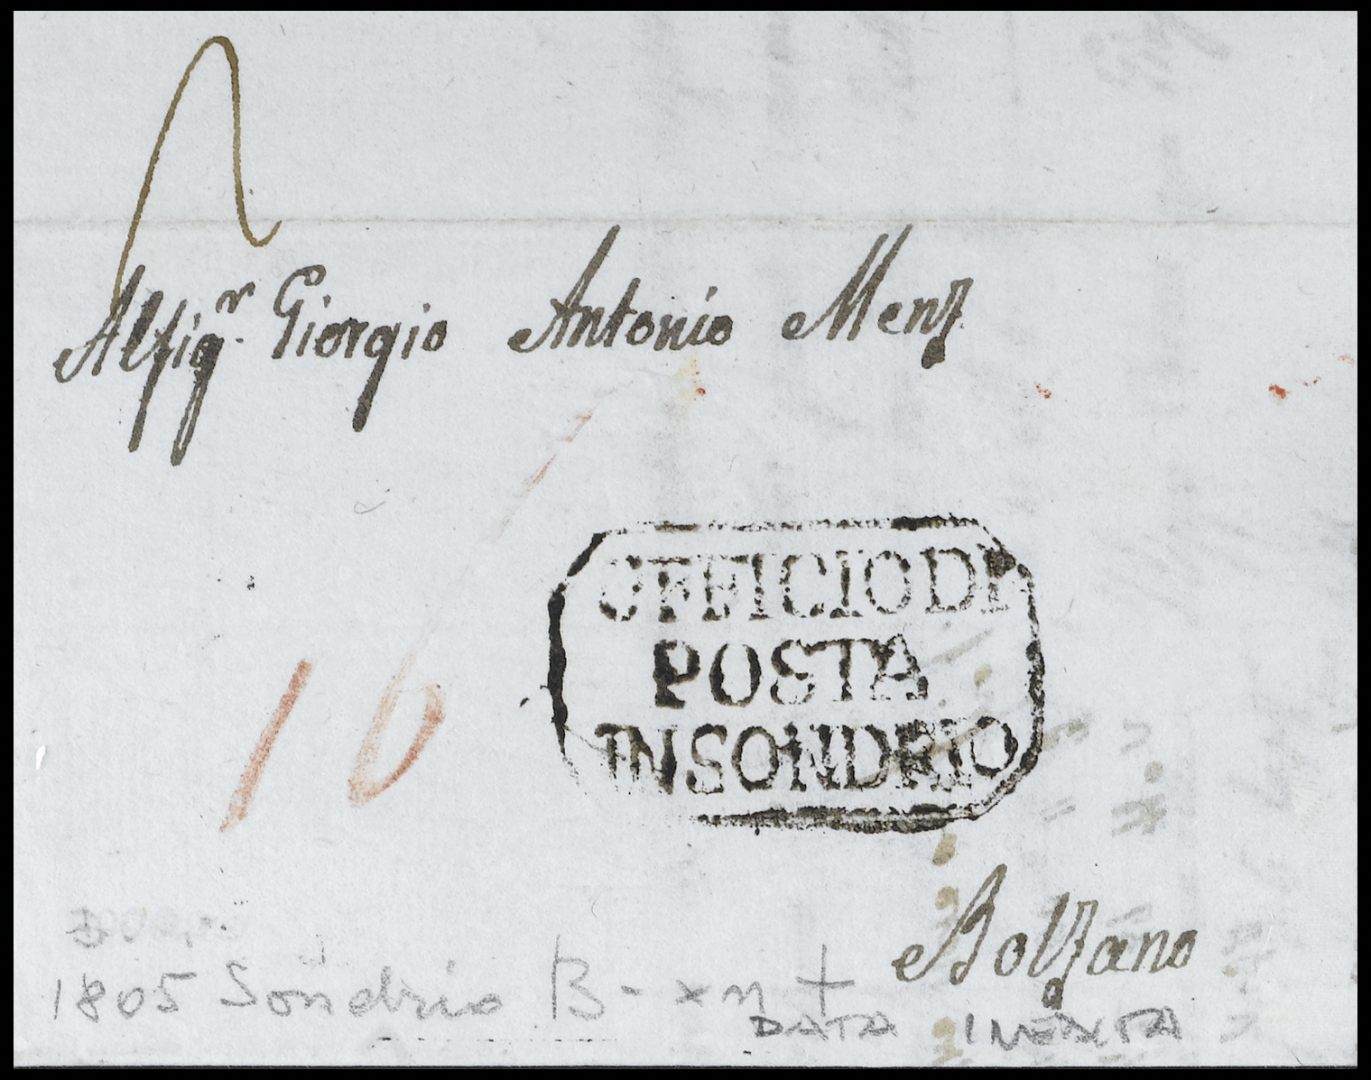 Al Sig.r Giorgio Antonio Menz
16
UFFICIO DI
POSTA
IN SONDRIO
Bolzano
1805 Sondrio B - x n +
DATA INEDITA